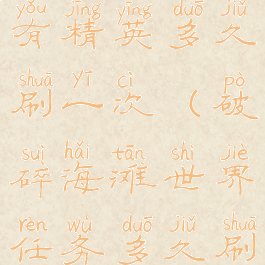 yǒu jīng yīng duō jiǔ
有精英多久
shuā yī cì pò
刷一次（破
suì hǎi tān shì jiè
碎海滩世界
rèn wù duō jiǔ shuā
任务多久刷